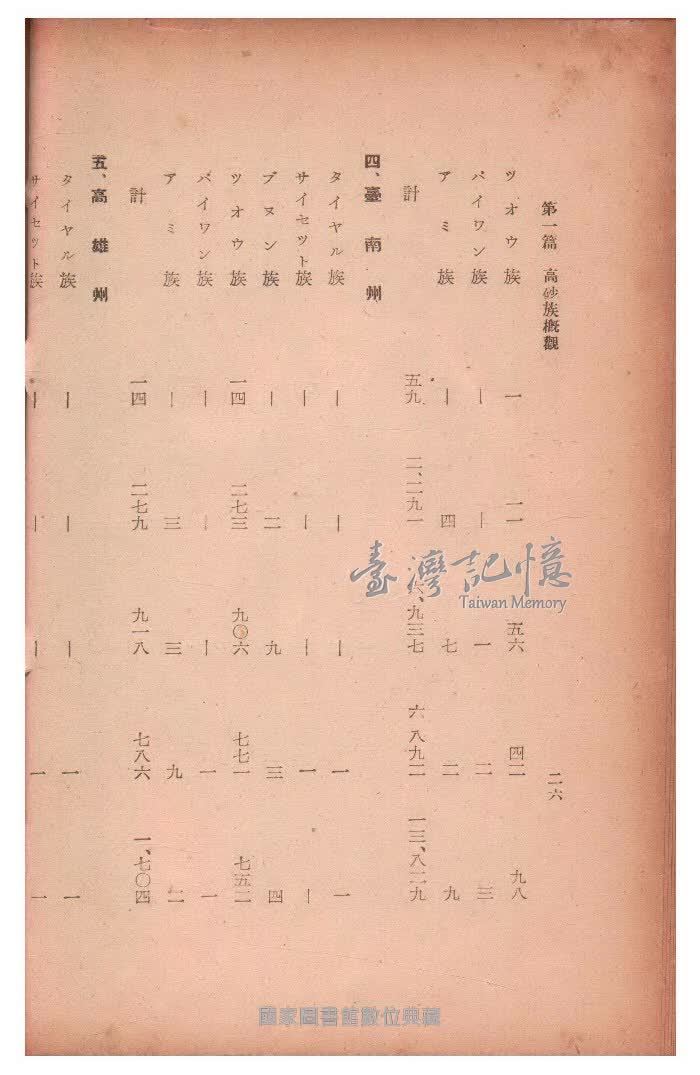 第一篇 高砂族概觀 二六
ツオウ族 一 一一 五六 四二 九八
パイワン族 ― ― 一 二 三
アミ族 ― 四 七 二 九
計 五九 二、二九一 六、九三七 六八九二 一三、八二九
四、臺南州
タイヤル族 ― ― ― 一 一
サイセツト族 ― ― ― 一 ―
ブヌン族 ― 二 九 三 四
ツオウ族 一四 二七三 九〇六 七七一 七五二
パイワン族 ― ― ― 一 一
アミ族 ― 三 三 九 二
計 一四 二七九 九一八 七八六 一、七〇四
五、高雄州
タイヤル族 ― ― ― 一 一
サイセツト族 ― ― ― 一 一
臺灣記憶
Taiwan Memory
國家圖書館數位典藏